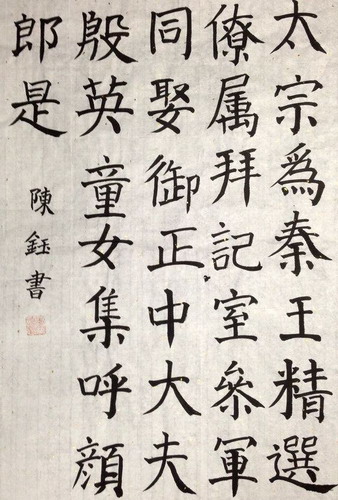 太宗爲秦王精選
僚属拜記室參軍
同娶御正中大夫
殷英童女集呼顔
郎是
陳鈺書